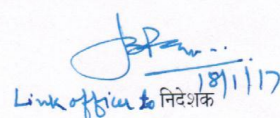 18/1/17
Link officer to निदेशक